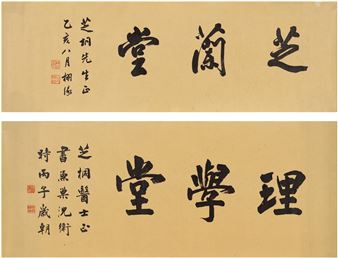 芝蘭堂
芝桐先生正
乙亥八月栩緣
理學堂
芝桐醫士正
書魚粟沈衛
時丙子歲朝